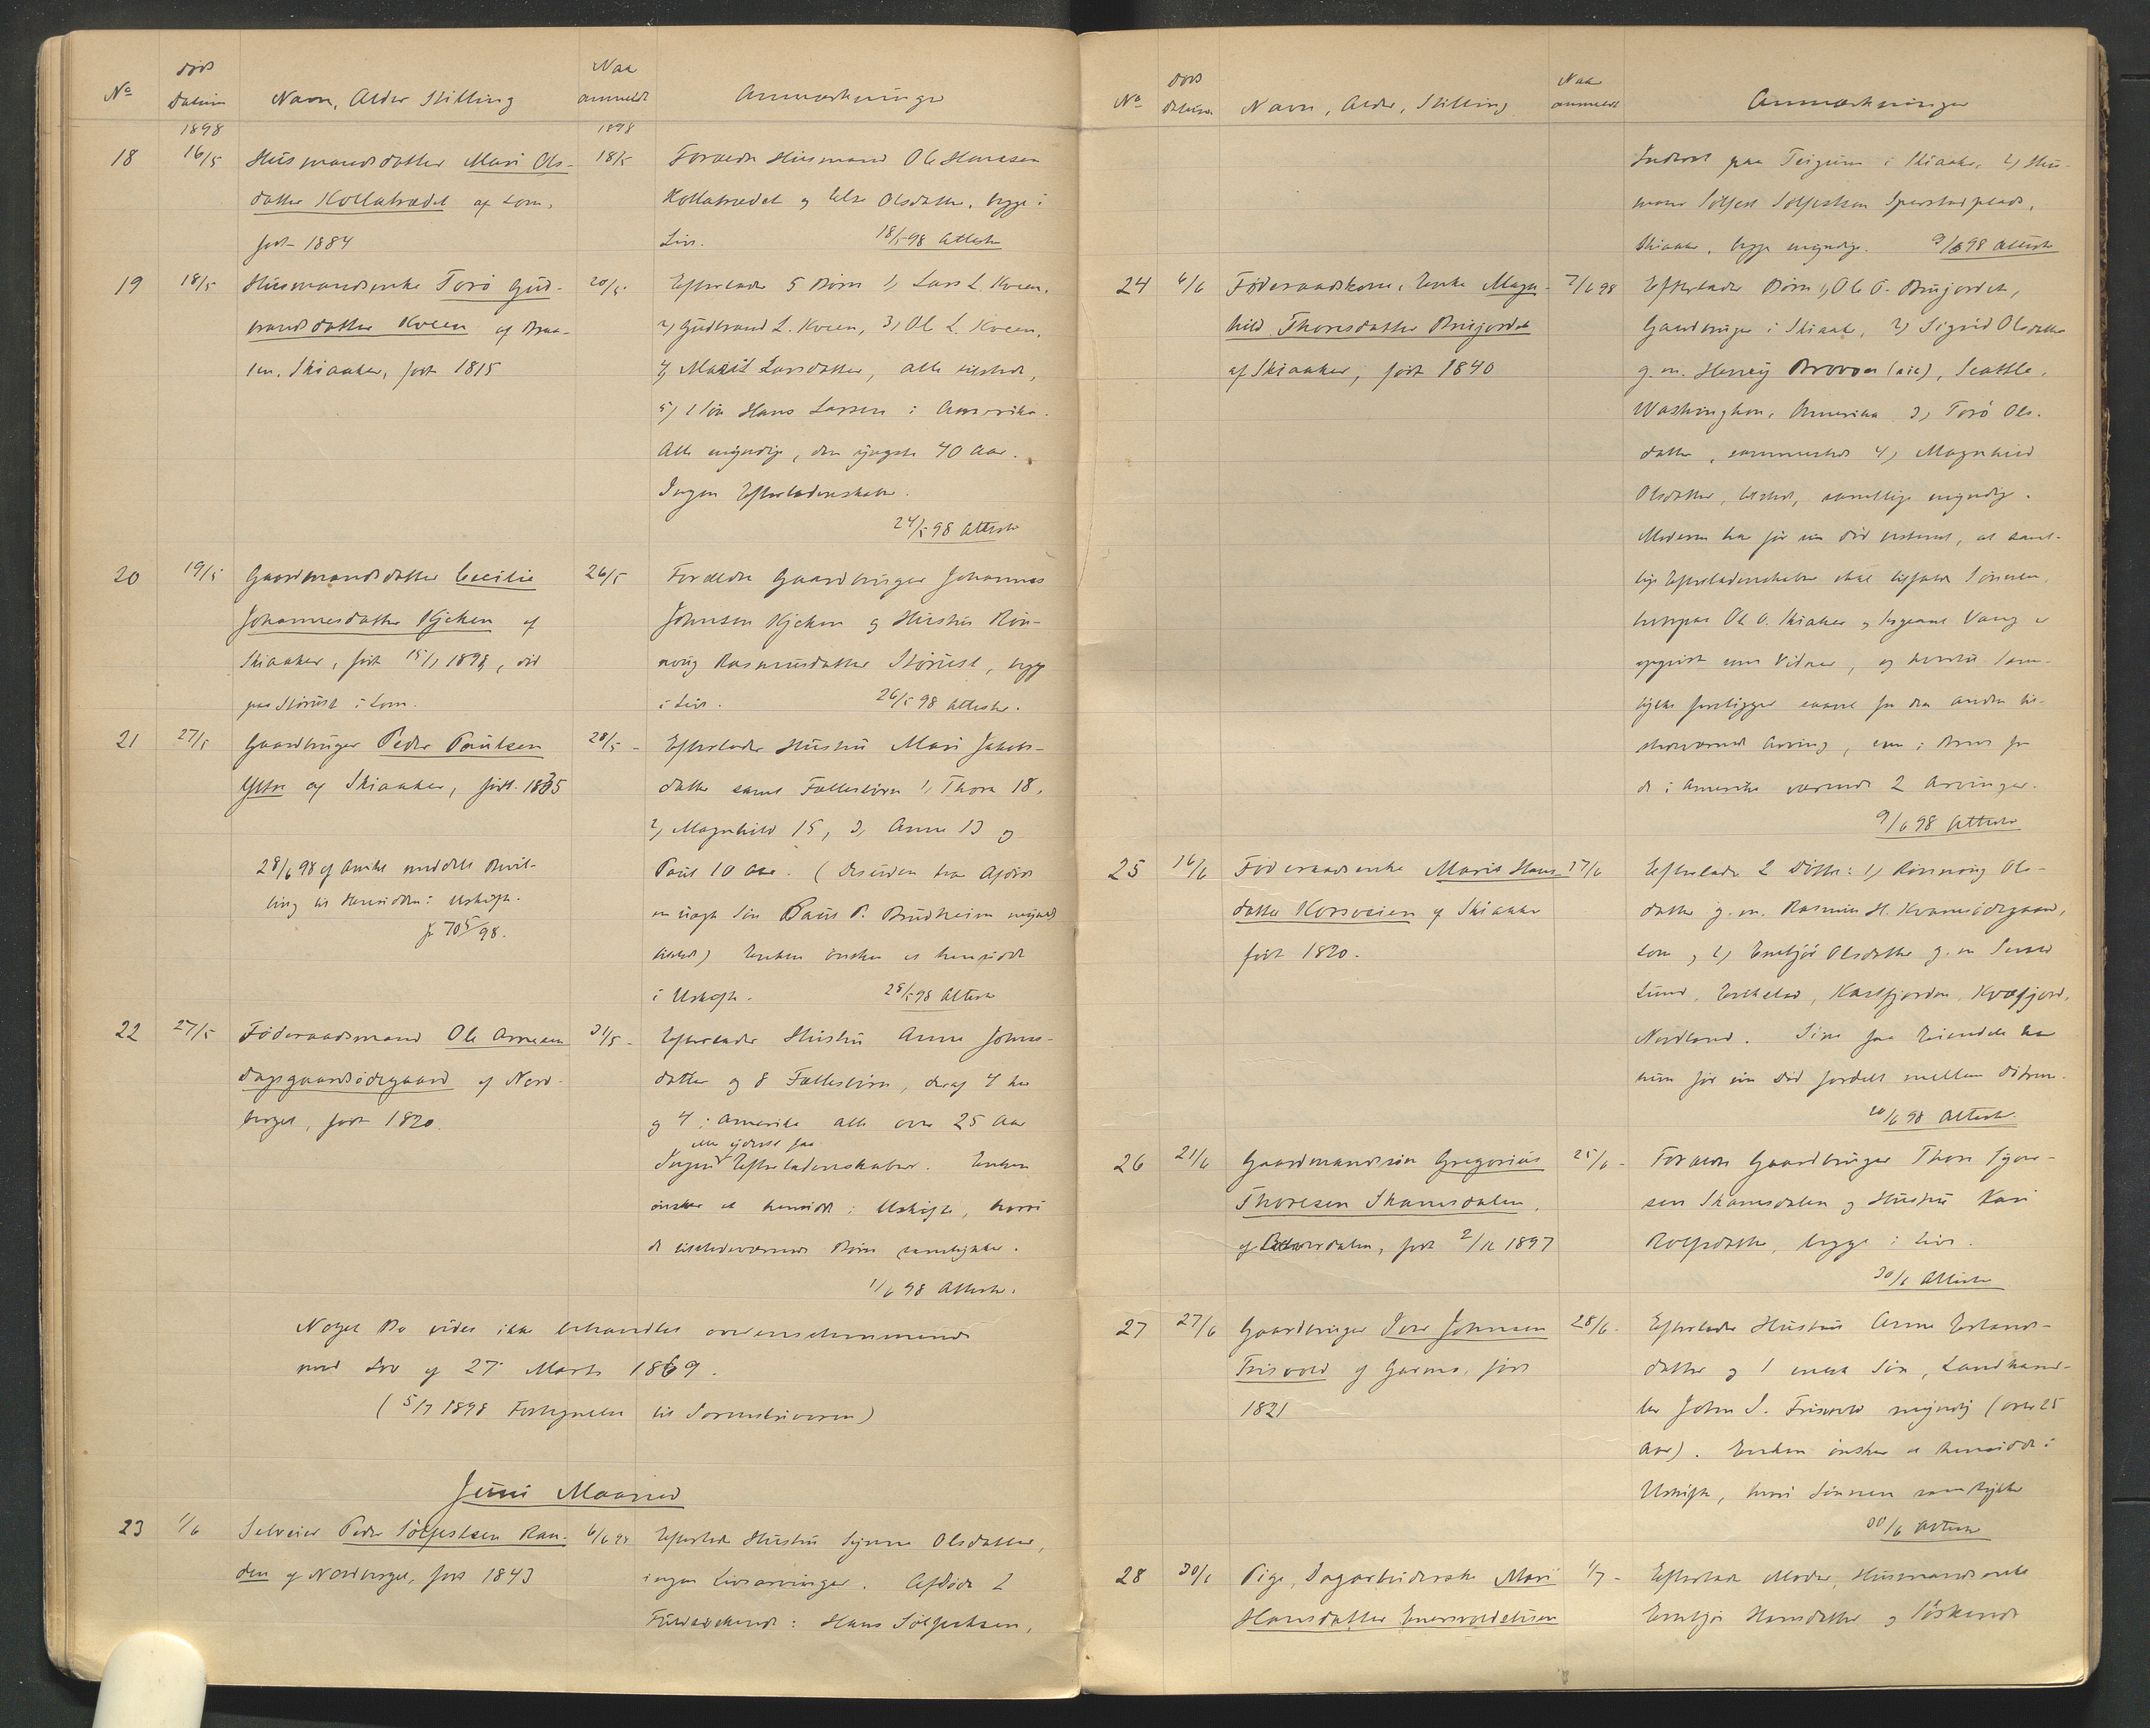 No
Døds
datum
Navn, Alder Stilling
Naar
anmeldt
Anmærkninger
1898
1898
18
16/5
Husmandsdatter Mari Ols-
datter Kollatrædet af Lom,
født 1884
18/5
Forældre Husmand Ole Hansen
Kollatrædet og Else Olsdatter, begge i
Live.
18/5 98 Attester
19
18/5
Husmandsenke Torø Gud-
brandsdatter Kveen af Braa-
ten, Skiaaker, født 1815
20/5
Efterlader 5 Børn 1) Lars L. Kveen,
2) Gudbrand L. Kveen, 3) Ole L. Kveen,
4) Marit Larsdatter, alle tilstede,
5) Søn Hans Larsen i Amerika.
Alle myndige, den yngste 40 Aar.
Ingen Efterladenskaber.
24/5 98 Attester
20
19/5
Gaardmandsdatter Cecilie
Johannesdatter Kjeken af
Skiaaker, født 15/1 1898, død
paa Störust i Lom.
26/5
Forældre Gaardbruger Johannes
Johnsen Kjeken og Hustru Røn-
naug Rasmusdatter Störust, begge
i Live.
26/5 98 Attester.
21
27/5
Gaardbruger Peder Paulsen
Yttre af Skiaaker, født 1835
28/6 98 af Amtet meddelt Bevil-
ling til Hensidden i Uskifte.
jr 705/98.
28/5 -
Efterlader Hustru Mari Jakobs-
datter samt Fællesbørn 1) Thora 18,
2) Magnhild 15, 3) Anne 13 og
Paul 10 Aar. (Desuden har Afdøde
en uægte Søn Paul P. Brudheim myndig
tilstede) Enken ønsker at hensidde
i Uskifte.
28/5 98 Attester
22
27/5
Føderaadsmand Ole Arnesen
Dagsgaardsødegaard af Nord-
berget, født 1820.
31/5 -
Efterlader Hustru Anne Johns-
datter og 8 Fællesbørn, deraf 4 her
og 4 i Amerika alle over 25 Aar
eller yderst faa
Ingen Efterladenskaber. Enken
ønsker at hensidde i Uskifte, hvori
de tilstedeværende Børn samtykker.
1/6 98 Attester.
Noget Bo vides ikke behandlet overensstemmende
med Lov af 27 Marts 1869.
(5/7 1898 Fortegnelse til Sorenskriveren)
Juni Maaned
23
1/6
Selveier Peder Sölfestsen Ran-
den af Nordberget, født 1843
6/6 98
Efterlader Hustru Synne Olsdatter,
ingen Livsarvinger. Afdøde 2
Fuldsødskende: Hans Sölfestsen,
No
Døds
datum
Navn, Alder, Stilling
Naar
anmeldt
Anmærkninger
Inderst paa Teigum i Skiaaker, 2) Hus-
mand Sölfest Sölfestsen Sperstadplads,
Skiaaker, begge myndige.
9/6 98 Attester
24
6/6
Føderaadskone, Enke Magn-
hild Thoresdatter Brujordet
af Skiaaker, født 1840
7/6 98
Efterlader Børn 1) Ole O. Brujordet,
Gaardbruger i Skiaaker, 2) Sigrid Olsdatter
g. m. Henrij Brovon (sic), Seattle,
Washington, Amerika 3) Torø Ols-
datter, sammesteds 4) Magnhild
Olsdatter, tilstede, samtlige myndige.
Moderen har før sin Død bestemt, at samt-
lige Efterladenskaber skal tilfalde Sønnen,
hvorpaa Ole O. Skiaker og Vang er
opgivet som Vidner, og hvortil Sam-
tykke foreligger saavel fra den anden til-
stedeværende Arving, som i Brev fra
de i Amerika værende 2 Arvinger.
9/6 98 Attester
25
16/6
Føderaadsenke Marit Hans-
datter Korsveien af Skiaaker
født 1820.
17/6
Efterlader 2 Døttre: 1) Rønnaug Ols-
datter g. m. Rasmus H. Kvamsødegaard,
Lom og 2) Embjør Olsdatter g. m.
Lund, Kastfjorden, Kvæfjord,
Nordland. Sine faa Eiendele har
hun før sin Død fordelt mellem Døtrene.
20/6 98 Attester.
26
21/6
Gaardmandssøn Gregorius
Thoresen Skamsdalen,
af Bøverdalen, født 2/12 1897
25/6 -
Forældre Gaardbruger Thore
sen Skamsdalen og Hustru Kari
Rolfsdatter, begge i Live.
30/6 Attester
27
27/6
Gaardbruger Iver Johnsen
Frisvold af Garmo, født
1821
28/6.
Efterlader Hustru Anne Erlands-
datter og 1 eneste Søn, Landhand-
ler John I. Frisvold myndig (over 25
Aar). Enken ønsker at hensidde i
Uskifte, hvori Sønnen samtykker
30/6 Attester
28
30/6
Pige, Dagarbeiderske Mari
Hansdatter Enersvoldeksen
1/7 -
Efterlader Moder, Husmandsenke
Embjør Hansdatter og Söskende